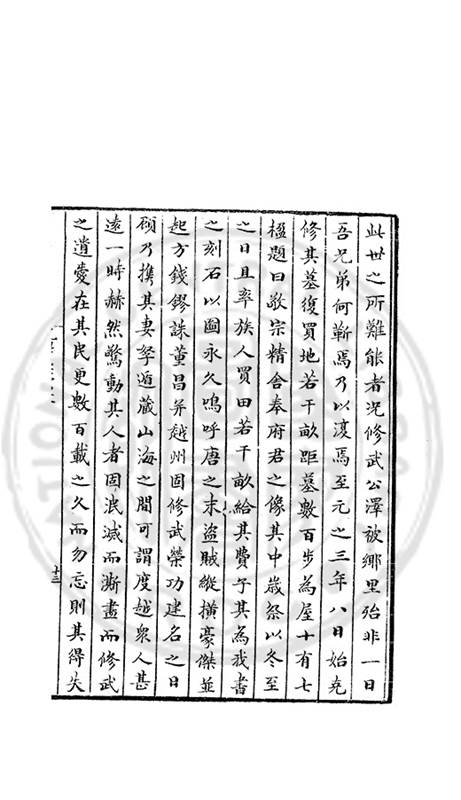 此世之所難能者况修武公澤被鄉里殆非一日
吾兄弟何靳焉乃以浚焉至元之三年八日始克
修其墓復買地若干畝距墓數百步為屋十有七
楹題曰敬宗精舍奉府君之像其中歲祭以冬至
之日且率族人買田若干畝給其費子其為我書
之刻石以圖永久嗚呼唐之末盜賊縱橫豪傑並
起方錢鏐誅董昌并越州固修武榮功建名之日
顧乃携其妻孥遁藏山海之間可謂度越衆人甚
遠一時赫然驚動其人者固泯滅而澌盡而修武
之遺愛在其民更數百載之久而勿忘則其得失
十三